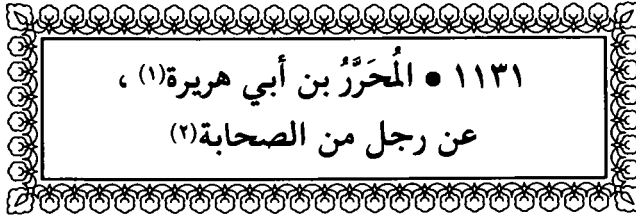 ١١٣١ • المُحَرَّرُ بن أبي هريرة(١) ،
عن رجل من الصحابة(٢)